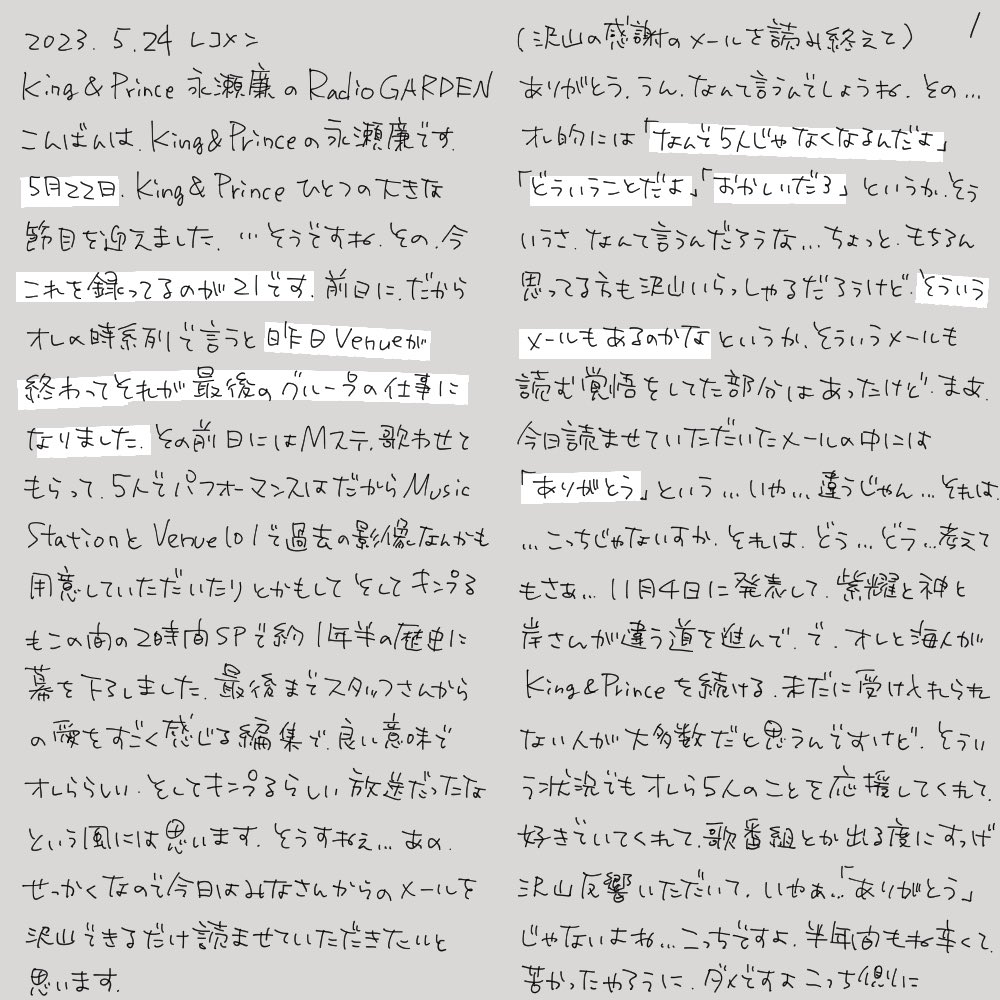 2023. 5.24 レコメン
King&Prince 永瀬廉のRadio GARDEN
こんばんは. King&Princeの永瀬廉です.
5月22日. King&Prince ひとつの大きな
節目を迎えました. …そうですね. その. 今
これを録ってるのが21です. 前日に. だから
オレの時系列で言うと昨日Venueが
終わってそれが最後のグループの仕事に
なりました. その前日にはMステ. 歌わせて
もらって. 5人でパフォーマンスはだからMusic
StationとVenue101で過去の影像なんかも
用意していただいたりとかもして そして キンプる
もこの間の2時間SPで約1年半の歴史に
幕を下ろしました. 最後までスタッフさんから
の愛をすごく感じる編集で. 良い意味で
オレららしい. そしてキンプるらしい放送だったな
という風には思います. そうすねぇ… あの.
せっかくなので今日はみなさんからのメールを
沢山できるだけ読ませていただきたいと
思います.
1
(沢山の感謝のメールを読み終えて)
ありがとう. うん. なんて言うんでしょうね. その…
オレ的には「なんで5人じゃなくなるんだよ」
「どういうことだよ」「おかしいだろ」というか. そう
いうさ. なんて言うんだろうな… ちょっと. もちろん
思ってる方も沢山いらっしゃるだろうけど. そういう
メールもあるのかなというか. そういうメールも
読む覚悟をしてた部分はあったけど. まぁ.
今日読ませていただいたメールの中には
「ありがとう」という… いや… 違うじゃん… それは.
… こっちじゃないすか. それは. どう… どう… 考えて
もさぁ… 11月4日に発表して. 紫耀と神と
岸さんが違う道を進んで. で. オレと海人が
King&Princeを続ける. 未だに受け入れられ
ない人が大多数だと思うんですけど. そうい
う状況でもオレら5人のことを応援してくれて.
好きでいてくれて. 歌番組とか出る度にすっげ
沢山反響いただいて. いやぁ…「ありがとう」
じゃないよね… こっちですよ. 半年間もね辛くて
苦かったやろうに. ダメですよ こっち側に